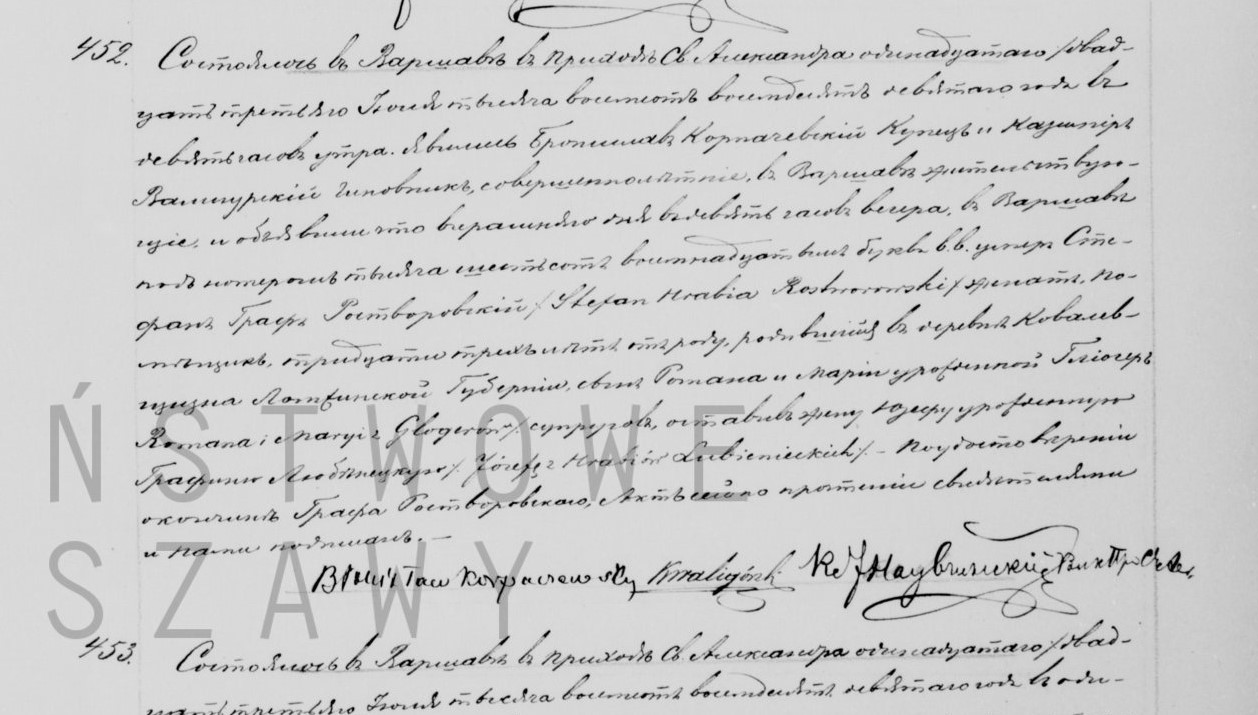 452. Состоялось въ Варшавѣ въ приходѣ Св. Александра одинадцатаго /двад-
цать третьяго Іюля тысяча восемьсотъ восемдесятъ девятаго года въ
девять часовъ утра. Явились Брониславъ Корпачевскій Купецъ и Казимиръ
Валигурскій Чиновникъ, совершеннолѣтніе, въ Варшавѣ жительствую-
щіе, и объявили что вчерашняго дня въ девять часовъ вечера, въ Варшавѣ
подъ номеромъ тысяча шестьсотъ восемнадцатымъ буквы в.в. умеръ Сте-
фанъ Графъ Ростворовскій / Stefan Hrabia Rostworowski / женатъ, по-
мѣщикъ, тридцати трехъ лѣтъ отъ роду, родившійся въ деревнѣ Ковалев-
щизна Ломжинской Губерніи, сынъ Романа и Маріи урожденной Глогеръ
Romana i Maryi z Glogerów /. супруговъ, оставивъ жену Юзефу урожденную
Графиню Любѣнецкую /. Józefę z Hrabiów Łubienieckich /. - По удостовѣреніи
о кончинѣ Графа Ростворовскаго, Актъ сей по прочтеніи свидѣтелями
и нами подписанъ. -
Bronisław Korpaczewsky KWaligórski
453. Состоялось въ Варшавѣ въ приходѣ Св. Александра одинадцатаго /двад-
цать третьяго Іюля тысяча восемьсотъ восемдесятъ девятаго года въ оди-
ŃSTWOWE
SZAWY